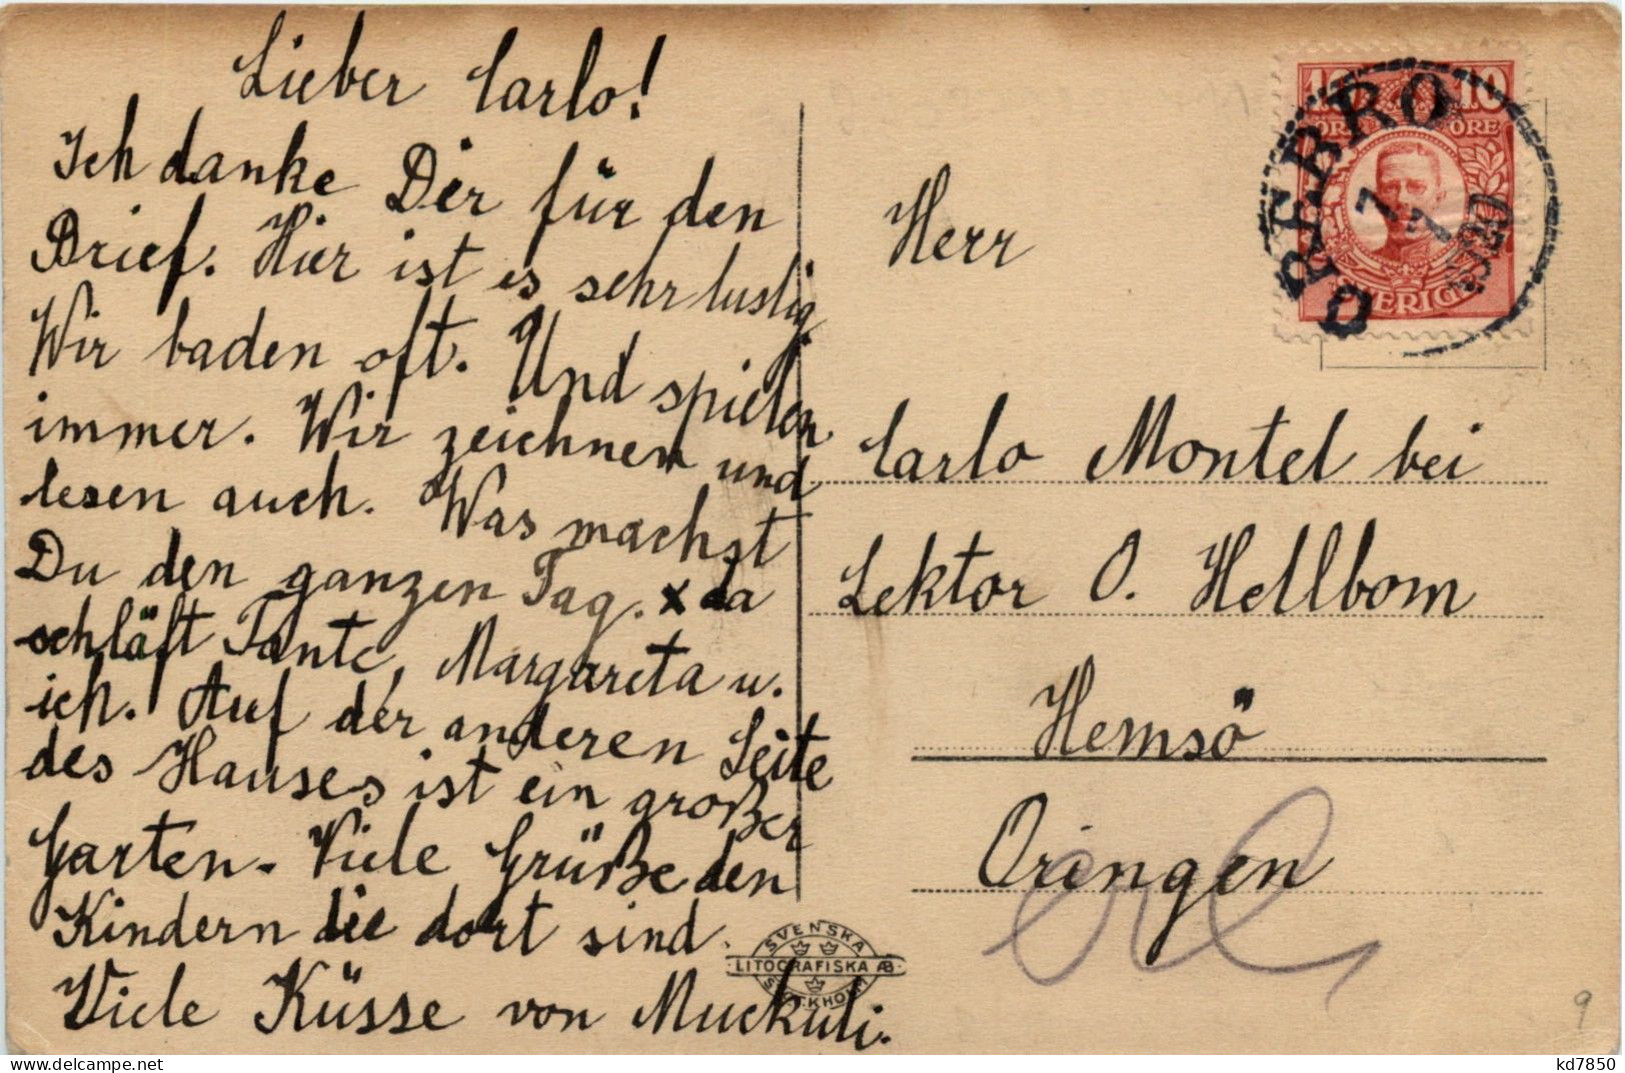 Lieber Carlo!
Ich danke Dir für den
Brief. Hier ist es sehr lustig
Wir baden oft. Und spielen
immer. Wir zeichnen und
lesen auch. Was machst
Du den ganzen Tag. x da
schläft Tante, Margareta u.
ich. Auf der anderen Seite
des Hauses ist ein großer
Garten. Viele Grüße den
Kindern die dort sind.
Viele Küsse von Muckuli.
Herr
Carlo Montel bei
Lektor O. Hellbom
Hemsö
Oringen
10 10
ÖRE ÖRE
SVERIGE
ÖREBRO
7 7
1920
SVENSKA
LITOGRAFISKA AB
STOCKHOLM
9
kd7850